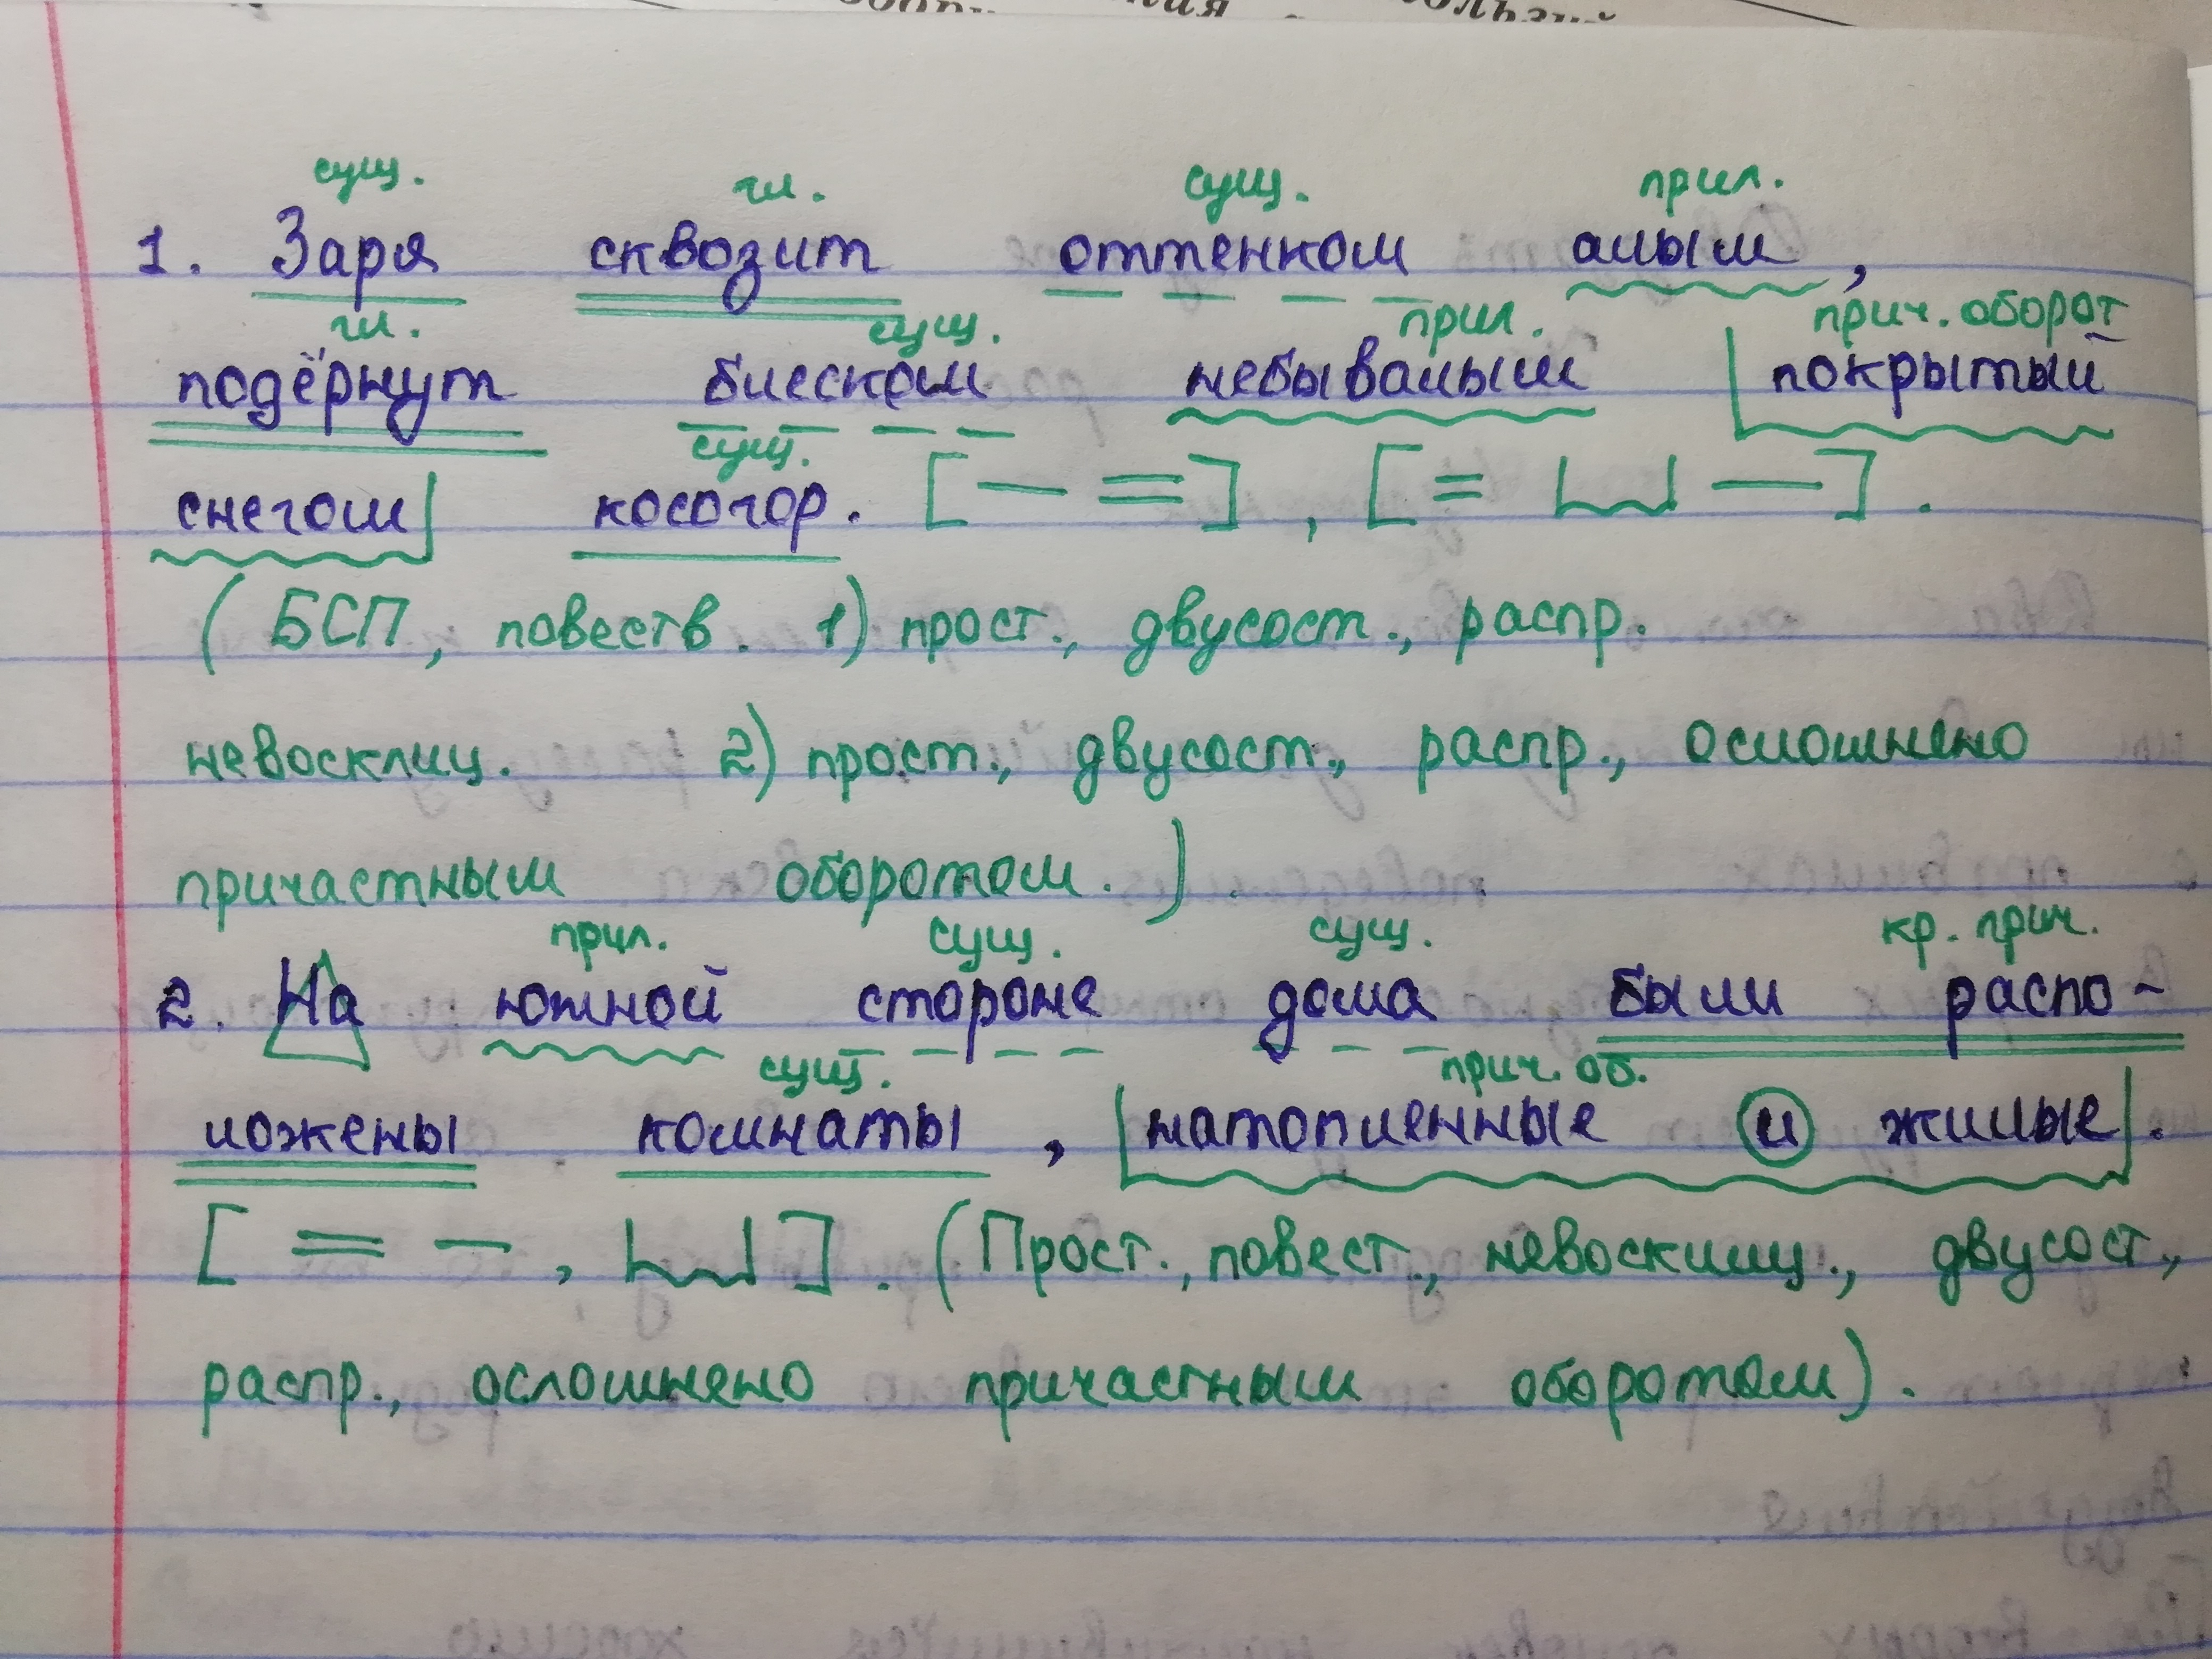 сущ. гл. сущ. прил.
1. Заря сквозит оттенком алым,
гл. сущ. прил. прич. оборот
подёрнут блеском небывалым покрытый
сущ.
снегом косогор. [— =], [= —].
(БСП, повеств. 1) прост., двусост., распр.
невосклиц. 2) прост., двусост., распр., осложнено
причастным оборотом.).
прил. сущ. сущ. кр. прич.
2. На южной стороне дома были распо-
сущ. прич. об.
ложены комнаты, натопленные и жилые.
[= —, ]. (Прост., повест., невосклиц., двусост.,
распр., осложнено причастным оборотом).